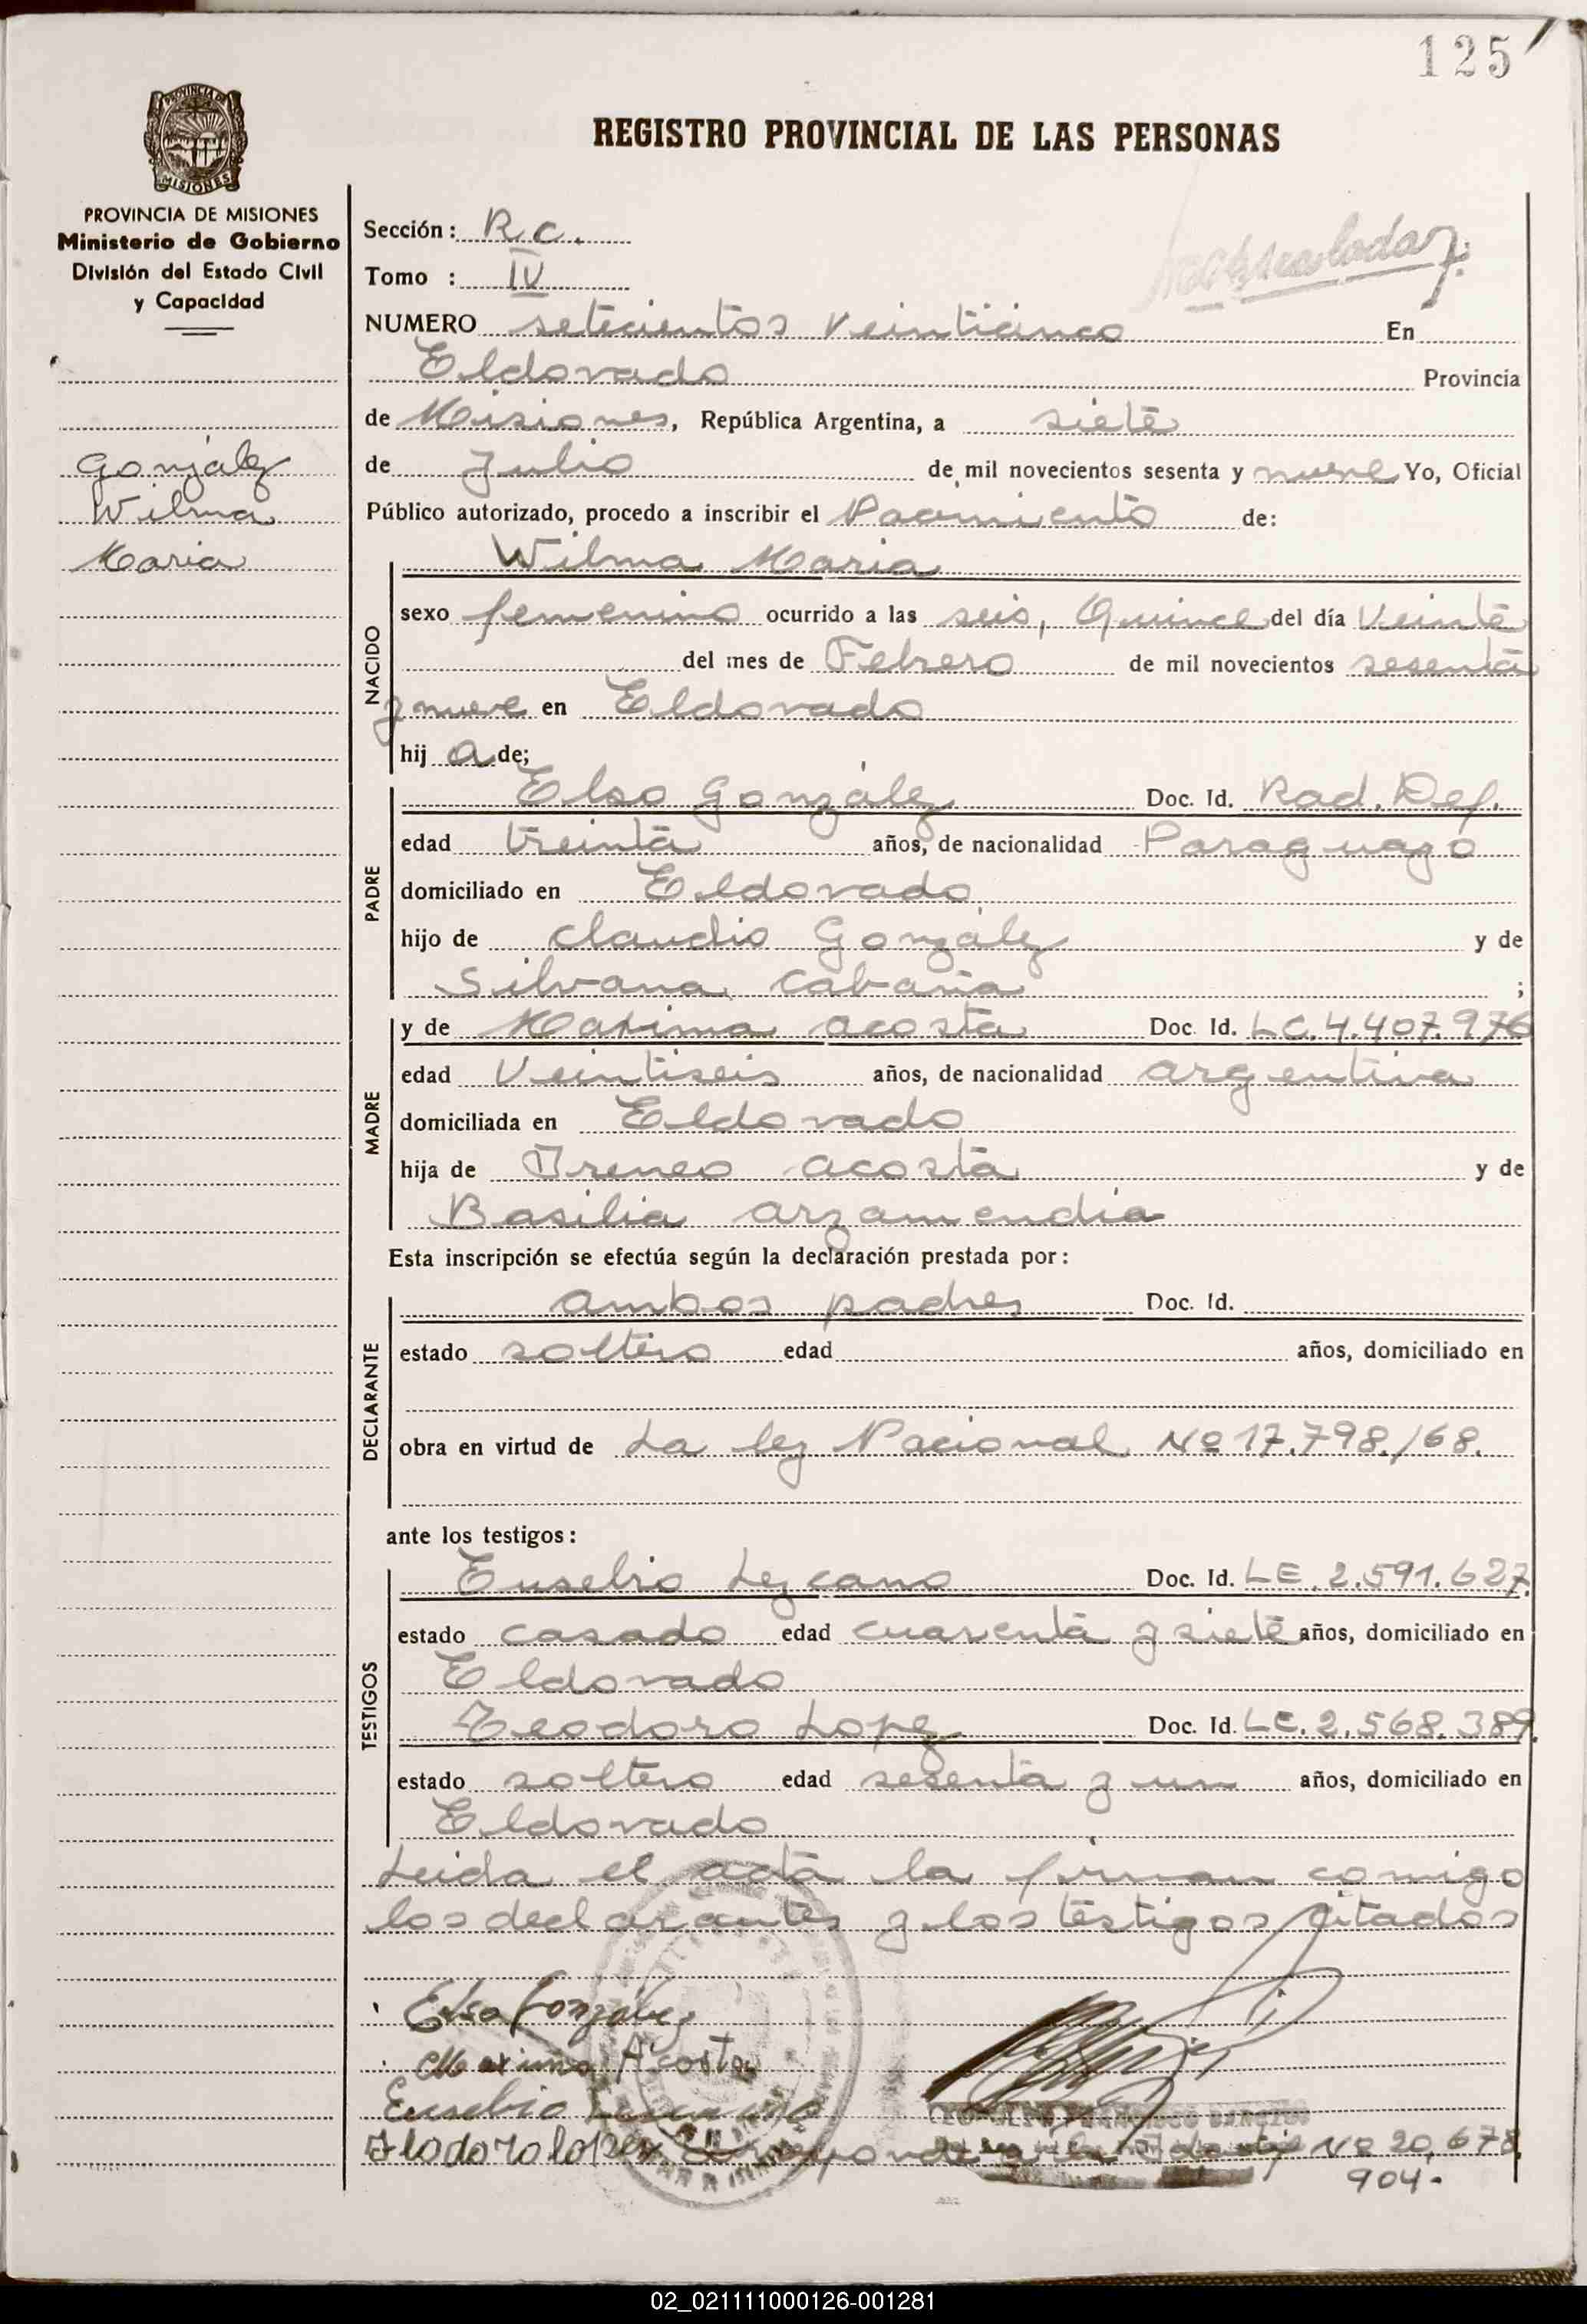 125
REGISTRO PROVINCIAL DE LAS PERSONAS
PROVINCIA DE MISIONES
MISIONES
PROVINCIA DE MISIONES
Ministerio de Gobierno
División del Estado Civil
y Capacidad
González
Wilma
Maria
Sección: R.C.
Tomo : IV
NUMERO setecientos veinticinco En
Eldorado Provincia
de Misiones, República Argentina, a siete
de Julio de mil novecientos sesenta y nueve Yo, Oficial
Público autorizado, procedo a inscribir el Nacimiento de:
Wilma Maria
NACIDO
sexo femenino ocurrido a las seis, Quince del día Veinte
del mes de Febrero de mil novecientos sesenta
y nueve en Eldorado
hij a de;
PADRE
Elso González Doc. Id. Rad. Def.
edad treinta años, de nacionalidad Paraguayo
domiciliado en Eldorado
hijo de Claudio González y de
Silvana Cabaña ;
MADRE
y de Maxima Acosta Doc. Id. LC. 4.407.976
edad Veintiseis años, de nacionalidad argentina
domiciliada en Eldorado
hija de Ireneo Acosta y de
Basilia Arzamendia
Esta inscripción se efectúa según la declaración prestada por:
DECLARANTE
ambos padres Doc. Id.
estado soltero edad años, domiciliado en
obra en virtud de La ley Nacional Nº 17.798./68.
ante los testigos:
TESTIGOS
Eusebio Lezcano Doc. Id. LE. 2.591.627.
estado casado edad cuarenta y siete años, domiciliado en
Eldorado
Teodoro Lopez Doc. Id. LE. 2.568.389.
estado soltero edad sesenta y un años, domiciliado en
Eldorado
Leida el acta la firman comigo
los declarantes y los testigos citados
Elso González
Maxima Acosta
Eusebio Lezcano
Tlodoro lopez Nº 20,678,
904-
02_021111000126-001281